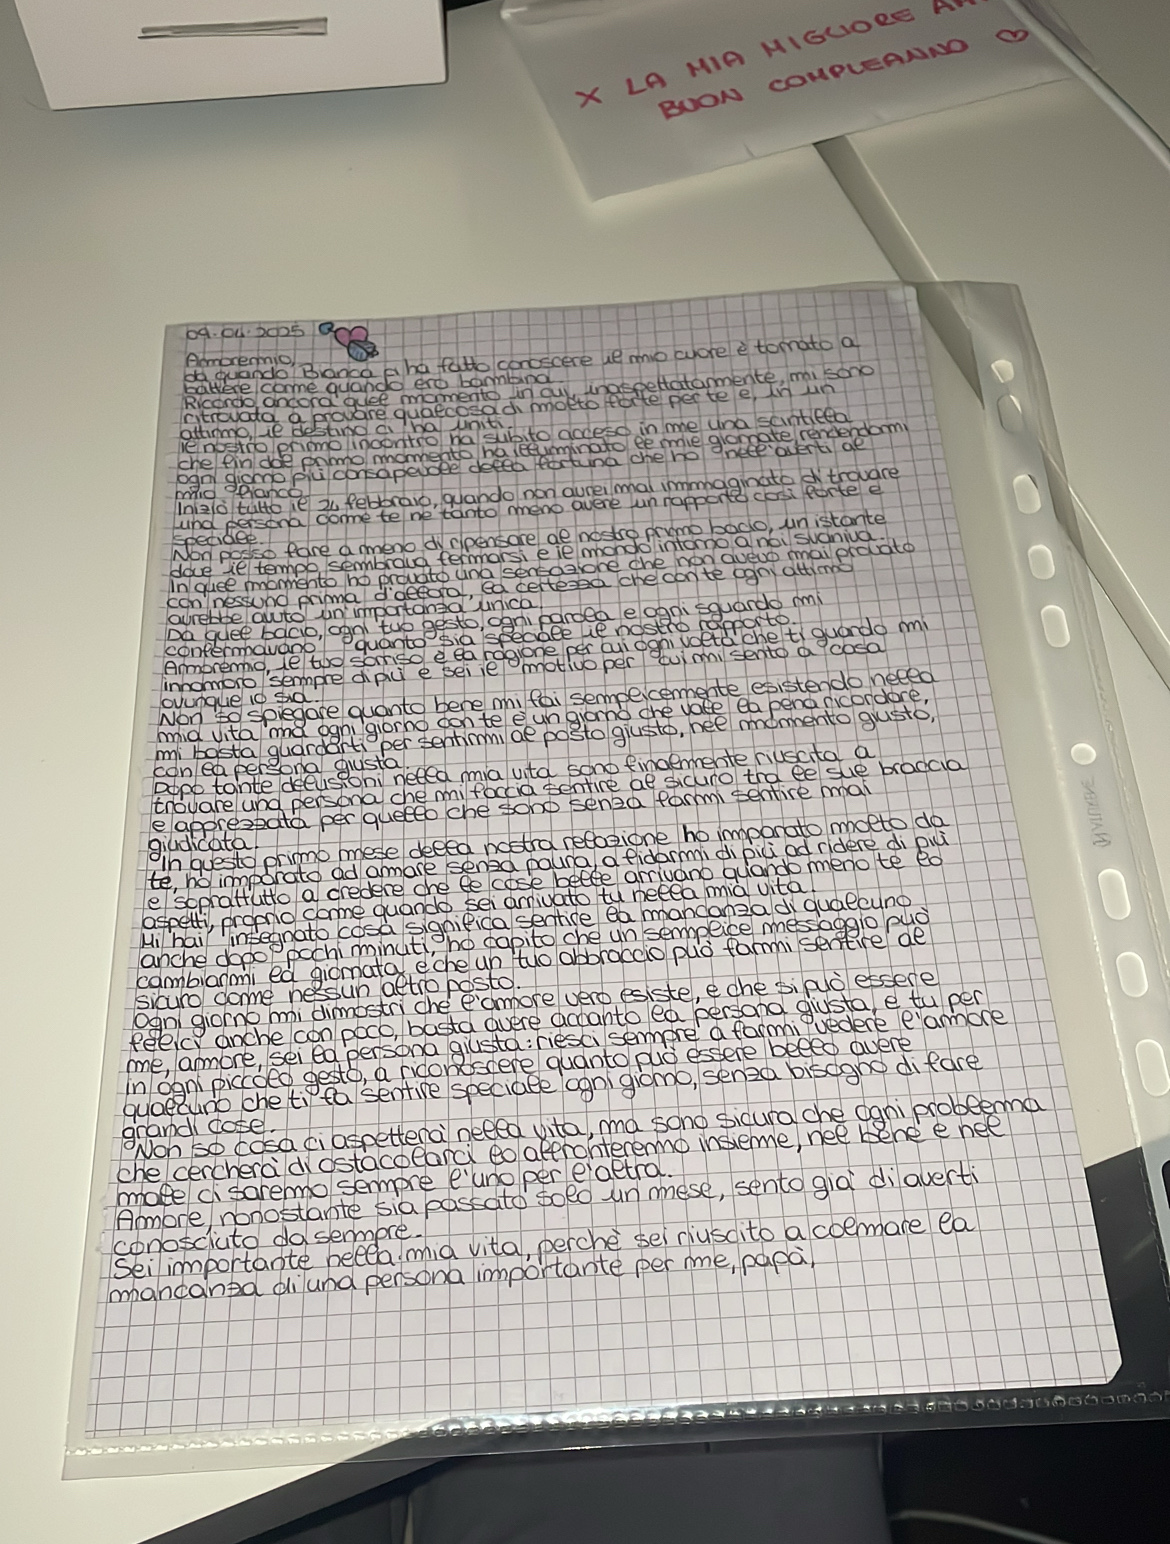 X LA MIA MIGLIORE
BUON COMPLEANNO ♡
09.04.2025
Amoremio,
da quando Bianca ci ha fatto conoscere il mio cuore è tornato a
battere come quando ero bambina.
Ricordo ancora quel momento in cui, inaspettatamente, mi sono
ritrovata a provare qualcosa di molto forte per te e, in un
attimo, il destino ci ha uniti.
Il nostro primo incontro ha subito acceso in me una scintilla
che fin dal primo momento ha illuminato le mie giornate rendendomi
ogni giorno più consapevole della fortuna che ho nell'averti al
mio fianco.
Iniziò tutto il 24 febbraio, quando non avrei mai immaginato di trovare
una persona come te né tanto meno avere un rapporto così forte e
speciale.
Non posso fare a meno di ripensare al nostro primo bacio, un istante
dove il tempo sembrava fermarsi e il mondo intorno a noi svaniva.
In quel momento ho provato una sensazione che non avevo mai provato
con nessuno prima d'allora, la certezza che con te ogni attimo
avrebbe avuto un'importanza unica.
Da quel bacio, ogni tuo gesto, ogni parola e ogni sguardo mi
confermavano quanto sia speciale il nostro rapporto.
Amoremio, il tuo sorriso è la ragione per cui ogni volta che ti guardo mi
innamoro sempre di più e sei il motivo per cui mi sento a casa
ovunque io sia.
Non so spiegare quanto bene mi fai semplicemente esistendo nella
mia vita ma ogni giorno con te è un giorno che vale la pena ricordare,
mi basta guardarti per sentirmi al posto giusto, nel momento giusto,
con la persona giusta.
Dopo tante delusioni nella mia vita sono finalmente riuscita a
trovare una persona che mi faccia sentire al sicuro tra le sue braccia
e apprezzata per quello che sono senza farmi sentire mai
giudicata.
In questo primo mese della nostra relazione ho imparato molto da
te, ho imparato ad amare senza paura, a fidarmi di più, ad ridere di più
e soprattutto a credere che le cose belle arrivano quando meno te lo
aspetti, proprio come quando sei arrivato tu nella mia vita.
Mi hai insegnato cosa significa sentire la mancanza di qualcuno
anche dopo pochi minuti, ho capito che un semplice messaggio può
cambiarmi la giornata, e che un tuo abbraccio può farmi sentire al
sicuro come nessun altro posto.
Ogni giorno mi dimostri che l'amore vero esiste, e che si può essere
felici anche con poco, basta avere accanto la persona giusta, e tu per
me, amore, sei la persona giusta: riesci sempre a farmi vedere l'amore
in ogni piccolo gesto, a riconoscere quanto può essere bello avere
qualcuno che ti fa sentire speciale ogni giorno, senza bisogno di fare
grandi cose.
Non so cosa ci aspetterà nella vita, ma sono sicura che ogni problemma
che cercherà di ostacolarci lo affronteremo insieme, nel bene e nel
male ci saremo sempre l'uno per l'altra.
Amore, nonostante sia passato solo un mese, sento già di averti
conosciuto da sempre.
Sei importante nella mia vita, perchè sei riuscito a colmare la
mancanza di una persona importante per me, papà,